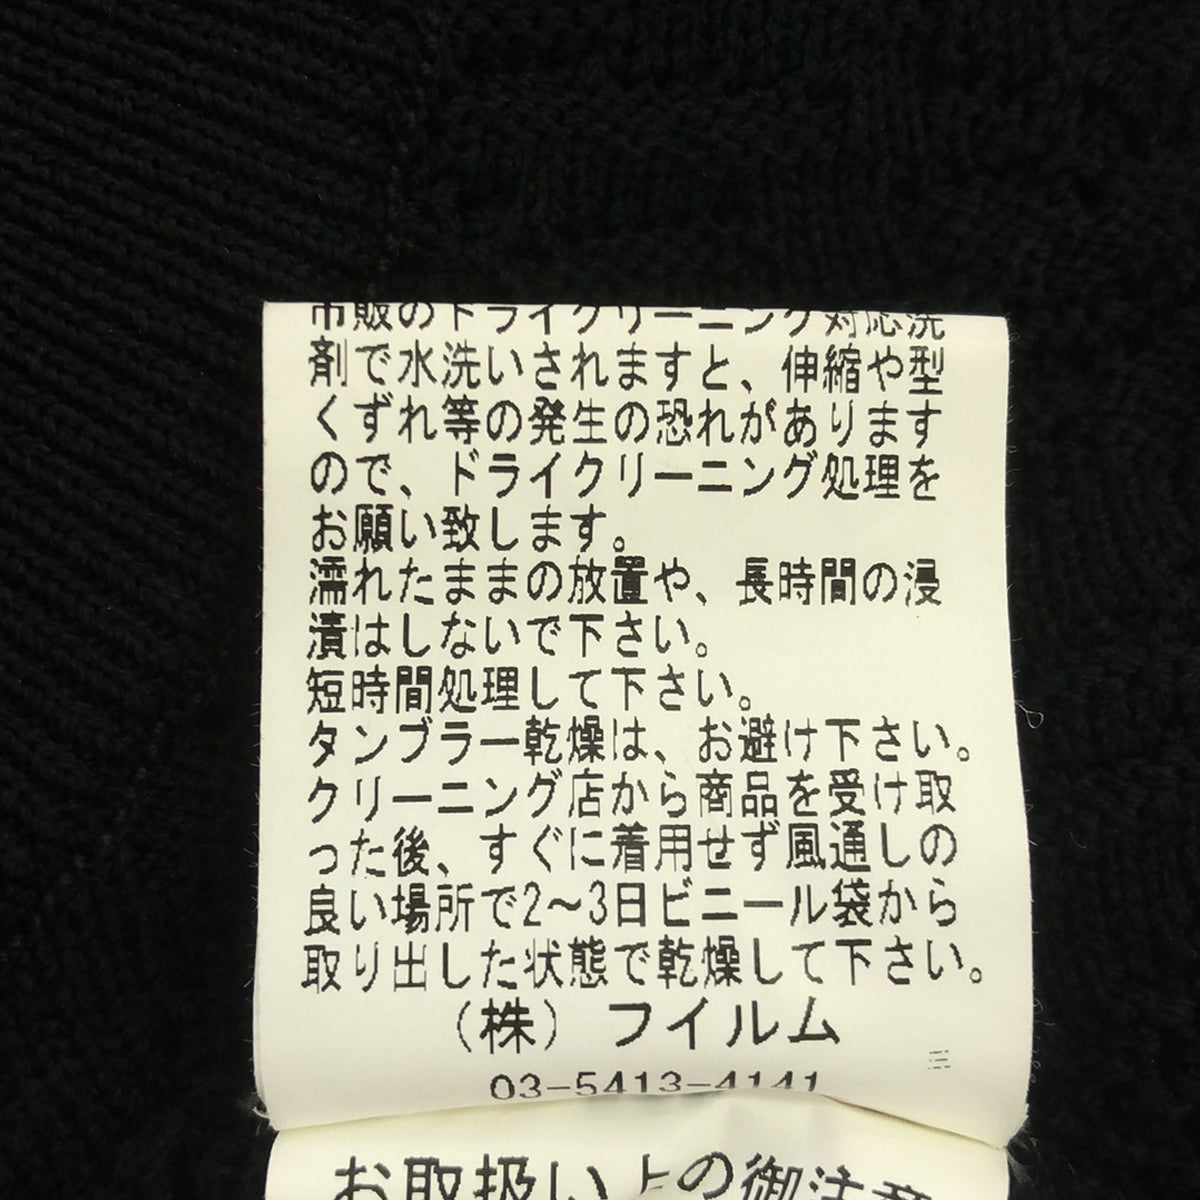 市販のドライクリーニング対応洗
剤で水洗いされますと、伸縮や型
くずれ等の発生の恐れがあります
ので、ドライクリーニング処理を
お願い致します。
濡れたままの放置や、長時間の浸
漬はしないで下さい。
短時間処理して下さい。
タンブラー乾燥は、お避け下さい。
クリーニング店から商品を受け取
った後、すぐに着用せず風通しの
良い場所で2〜3日ビニール袋から
取り出した状態で乾燥して下さい。
（株）フイルム
03-5413-4141
お取扱い上の御注意